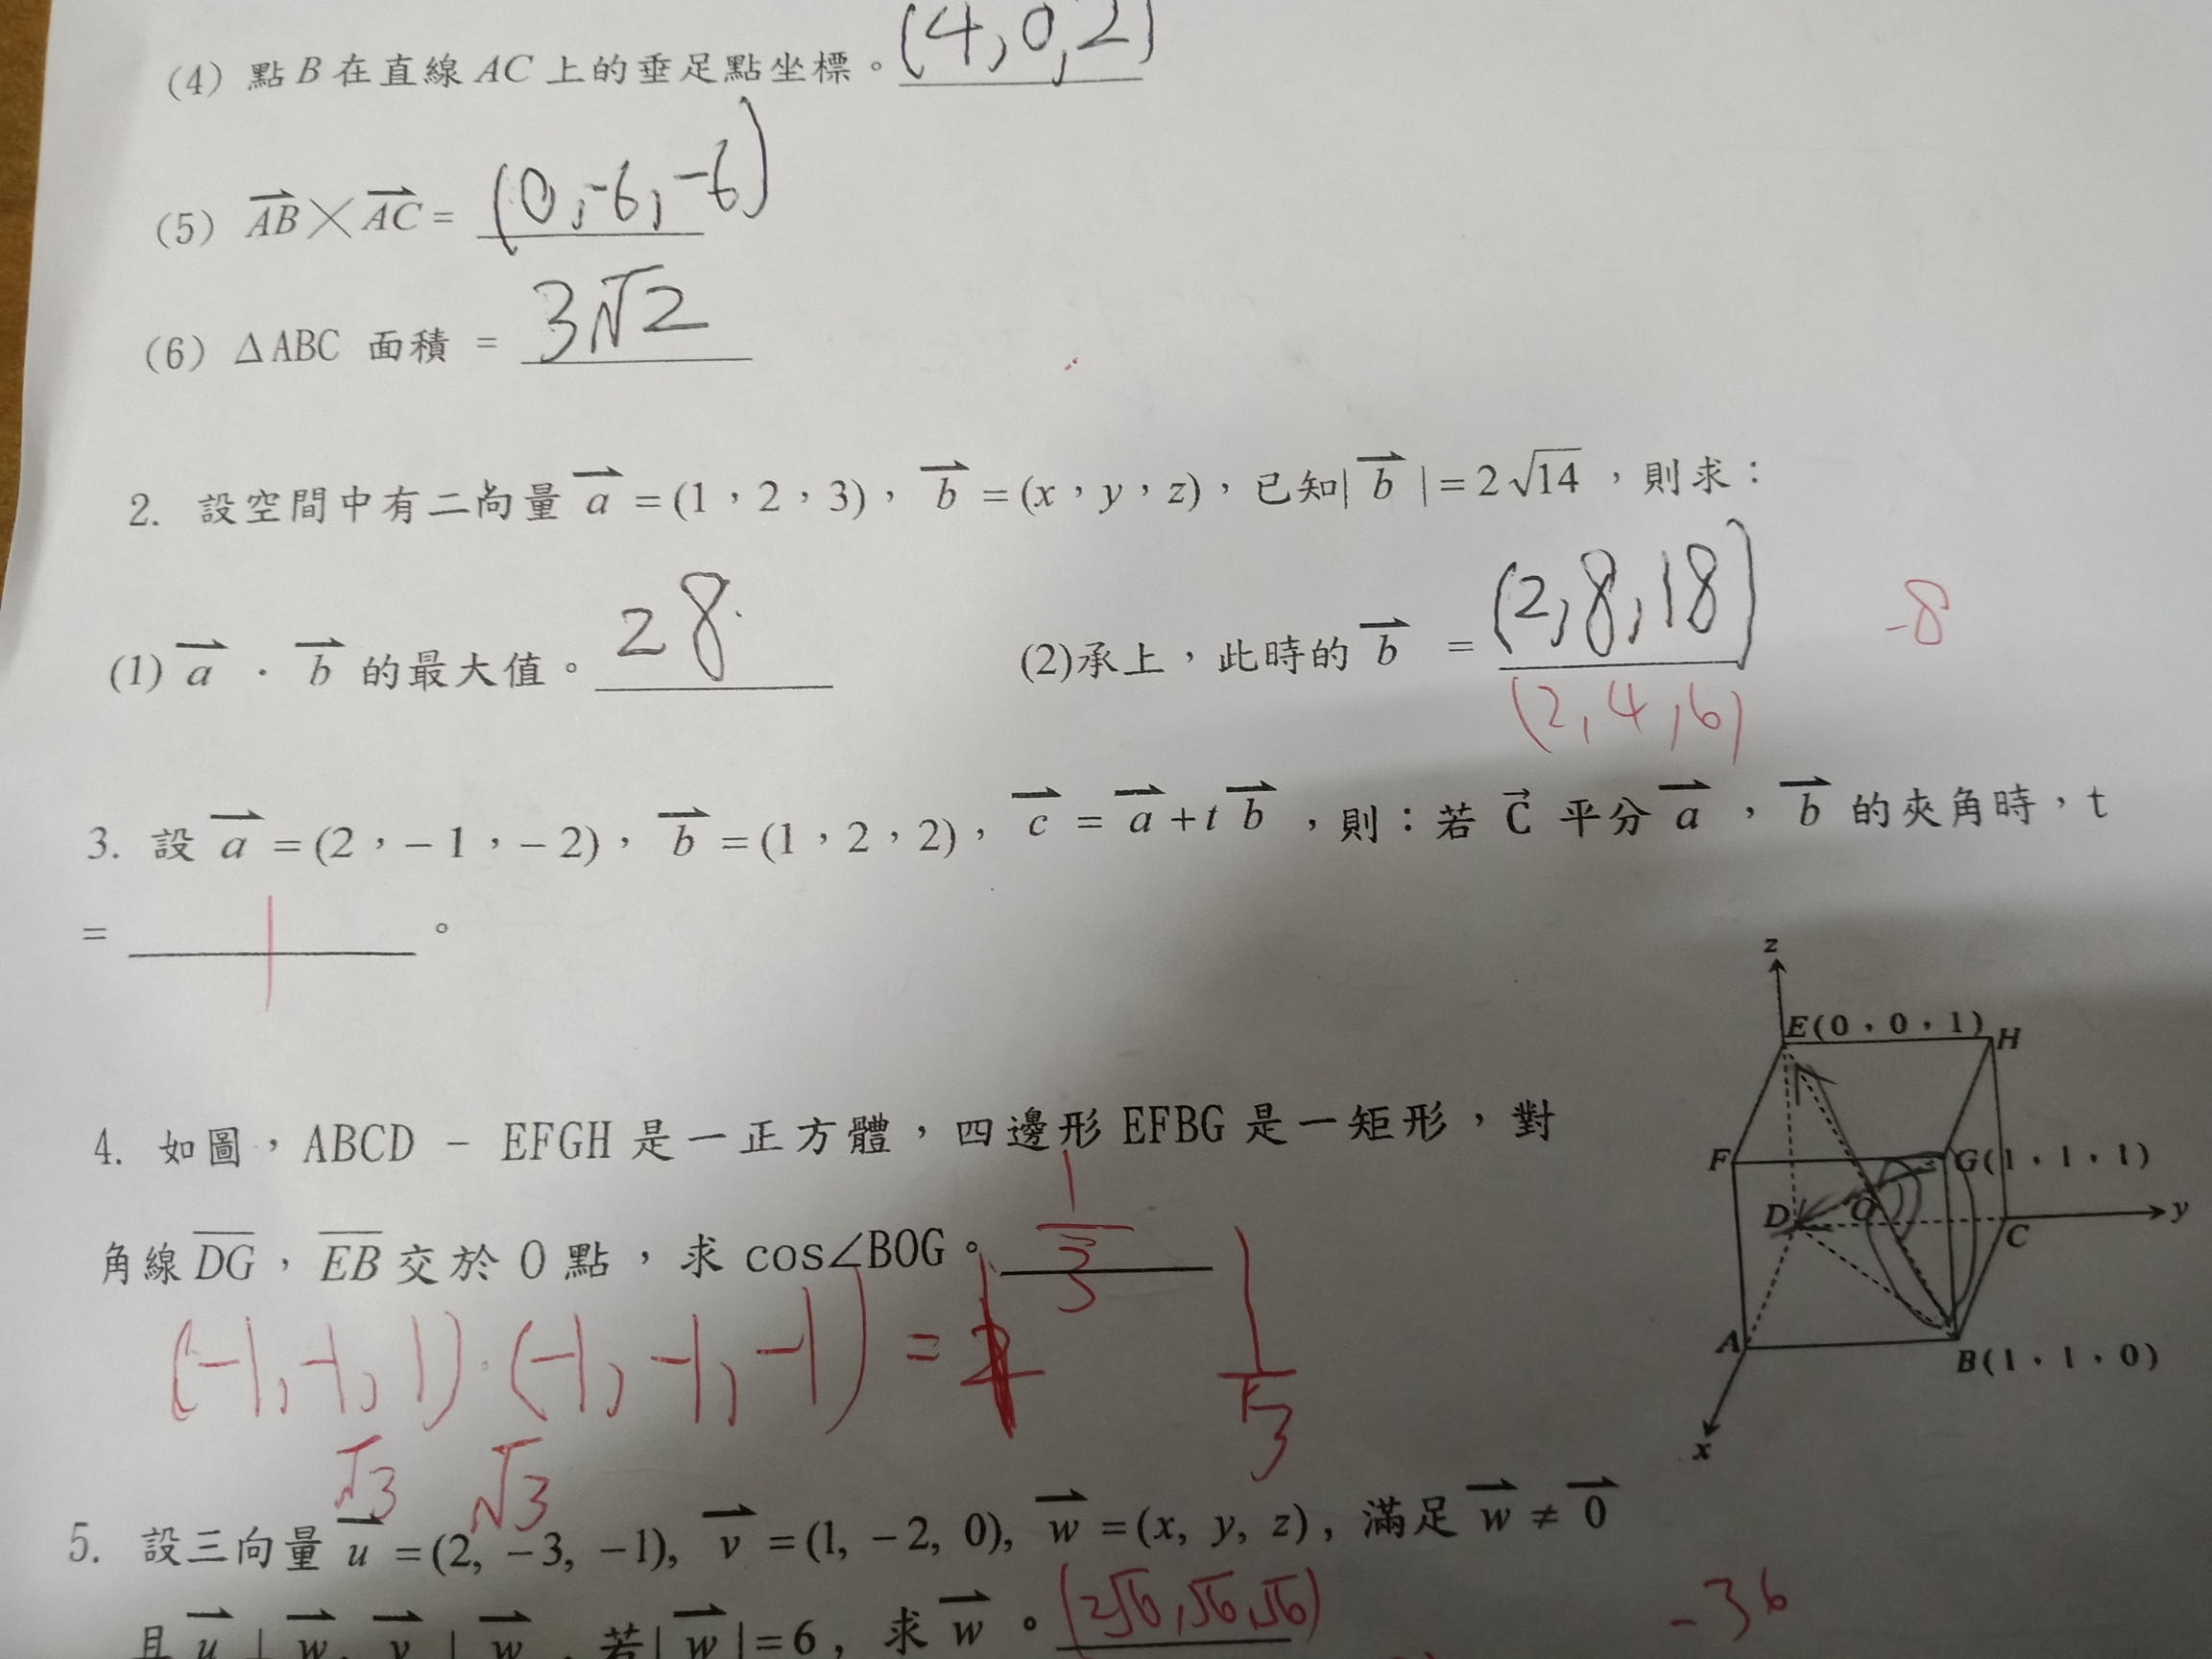 (4) 點 B 在直線 AC 上的垂足點坐標。(4,0,2)
(5) AB × AC = (0,-6,-6)
(6) ΔABC 面積 = 3√2
2. 設空間中有二向量 a = (1，2，3)，b = (x，y，z)，已知| b | = 2√14，則求：
(1) a · b 的最大值。28
(2)承上，此時的 b = (2,8,18)
-8
(2,4,6)
3. 設 a = (2，-1，-2)，b = (1，2，2)，c = a + t b，則：若 C 平分 a，b 的夾角時，t
= 1。
z
E(0，0，1)
H
4. 如圖，ABCD - EFGH 是一正方體，四邊形 EFBG 是一矩形，對
F
G(1，1，1)
角線 DG，EB 交於 O 點，求 cos∠BOG。1/3
D
O
y
C
(-1,-1,1)·(-1,-1,-1) =
1
3
A
B(1，1，0)
x
√3 √3
5. 設三向量 u = (2, -3, -1), v = (1, -2, 0), w = (x, y, z), 滿足 w ≠ 0
且 u ⊥ w, v ⊥ w, 若| w | = 6, 求 w。(2√6,√6,√6)
-36